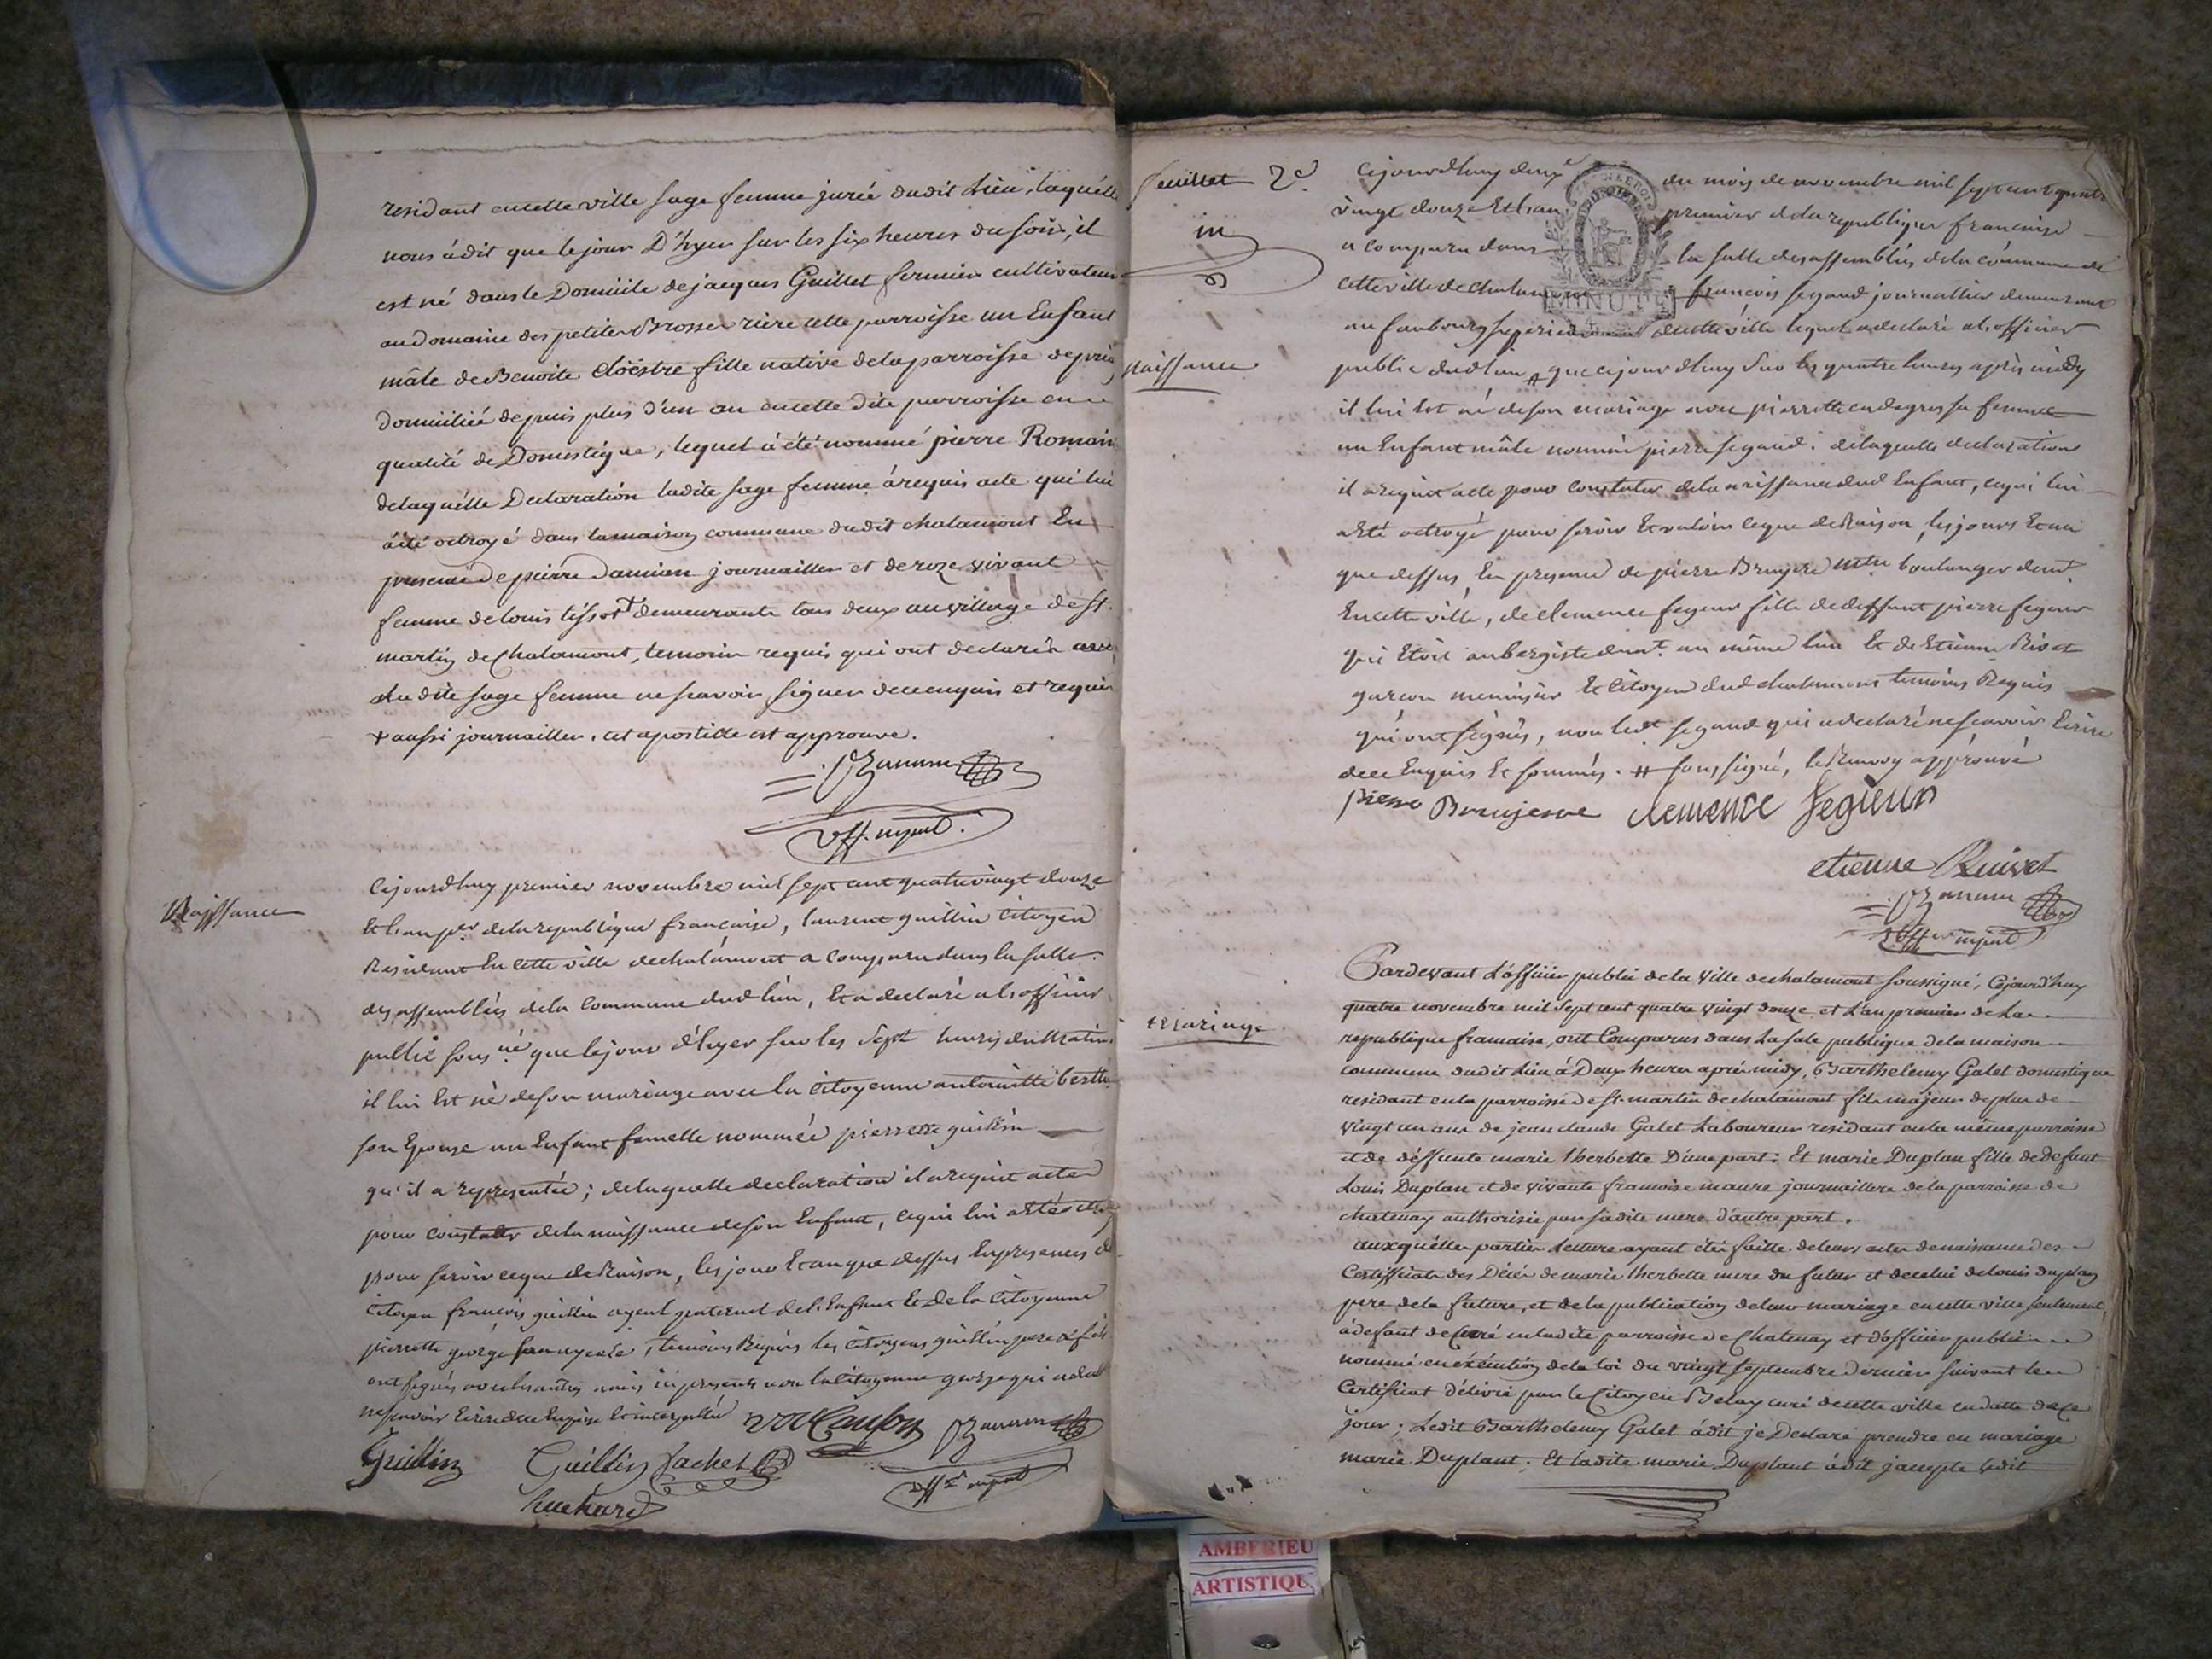 residant encette ville sage femme jurée dudit Lieu, laquelle
nous à dit que le jour D'hyer sur les six heures du soir, il
est né dans le Domicile de jacques Guillet fermier cultivateur
au domaine des petites Brosses riere cette parroisse un Enfant
mâle de Benoite fille native de la parroisse de
domiciliée depuis plus d'un an encette dite parroisse en
qualité de Domestique, lequel à été nommé pierre Romain
delaquélle Declaration ladite sage femme à requis acte qui lui
à été octroyé dans la maison commune dudit chalamont En
presence de pierre Damian journaillier et de roze vivant
femme de louis tissot + demeurants tous deux au village de St.
martin de Chalamont, temoins requis qui ont declarés avec
ladite sage femme ne scavoir signer de ce enquis et requis
+ aussi journaillier. cet apostille est approuvé.
off. public
Naissance
Cejourdhuy premier novembre mil sept cent quatrevingt douze
Et l'an per. dela republique francaise, laurent guillin Citoyen
Residant En cette ville de chalamont a comparu dans la salle
des assemblées dela Commune dud lieu, Et a declaré a l'officier
public sousné que le jour d'hyer sur les Sept heures du Matin
il lui Est né de son mariage avec la Citoyenne antoinette
son Epouse un Enfant femelle nommée pierrette guillin
qu'il a representée; de laquelle declaration il a requit acte
pour constater de la naissance de son Enfant, ce qui lui a Eté
pour servir ce que de Raison, les jour Et an que dessus En presences du
Citoyen françois guillin ayeul paternel de l'Enfant Et De la Citoyenne
pierrette george, temoins Requis les citoyens guillin pere et fils
ont signés avec les autres amis ici presents non la Citoyenne george qui a declaré
ne scavoir Ecrire de ce Enquise Et interpellée
Guillin Guillin Jachet
off. public
feuillet 2e.
Cejourdhuy deux du mois de novembre mil sept cent quatre
vingt douze Et l'an premier dela republique francaise
a comparu dans la salle des assemblées dela commune de
cette ville de Chalamont françois segaud journaillier demeurant
MINUTE
au faubourg de cette ville lequel a declaré a l'officier
Naissance
public dud lieu # que cejourdhuy sur les quatre heures après midy
il lui Est né de son mariage avec pierrette sa femme
un Enfant mâle nommé pierre segaud. de laquelle declaration
il a requit acte pour constater de la naissance dud Enfant, ce qui lui
a Eté octroyé pour servir Et valoir ce que de Raison, les jours Et an
que dessus, En presence de pierre Bruyere boulanger demt.
En cette ville, de clemence fille de deffunt pierre
qui Etoit aubergiste demt. au même lieu Et de Etienne
garcon menuisier Et Citoyen dud chalamont temoins Requis
qui ont signés, non ledt segaud qui a declaré ne scavoir Ecrire
de ce Enquis Et sommés. # sous signé, le Renvoy approuvé
pierre Bruyere clemence
etienne
off. public
Mariage
Pardevant L'officier public de la ville de chalamont soussigné, Cejourd'huy
quatre novembre mil sept cent quatre vingt douze et L'an premier de La
republique francaise, ont Comparus dans La sale publique de la maison
commune dudit Lieu à Deux heures après midy, Barthelemy Galet domestique
residant en la parroisse de St. martin de chalamont fils majeur de plus de
vingt un ans de jean claude Galet Laboureur residant en la même parroisse
et de déffunte marie Therbette D'une part: Et marie Duplan fille de defunt
Louis Duplan et de vivante francoise maure journailliere de la parroisse de
chatenay authorisée par sadite mere d'autre part.
auxquélles parties Lecture ayant été faitte de leurs actes de naissance des
Certifficats des Décés de marie Therbette mere du futur et de celui de Louis Duplan
pere de la future, et de la publication de leur mariage encette ville seulement,
à defaut de Curé en ladite parroisse de Chatenay et d'officier public
nommé en éxécution de la loi du vingt septembre dernier suivant le
Certificat délivré par le Citoyen Belay curé de cette ville en datte de ce
jour; Ledit Barthelemy Galet à dit je Declare prendre en mariage
marie Duplant. Et ladite marie Duplant à dit j'accepte ledit
AMBERIEU
ARTISTIQU